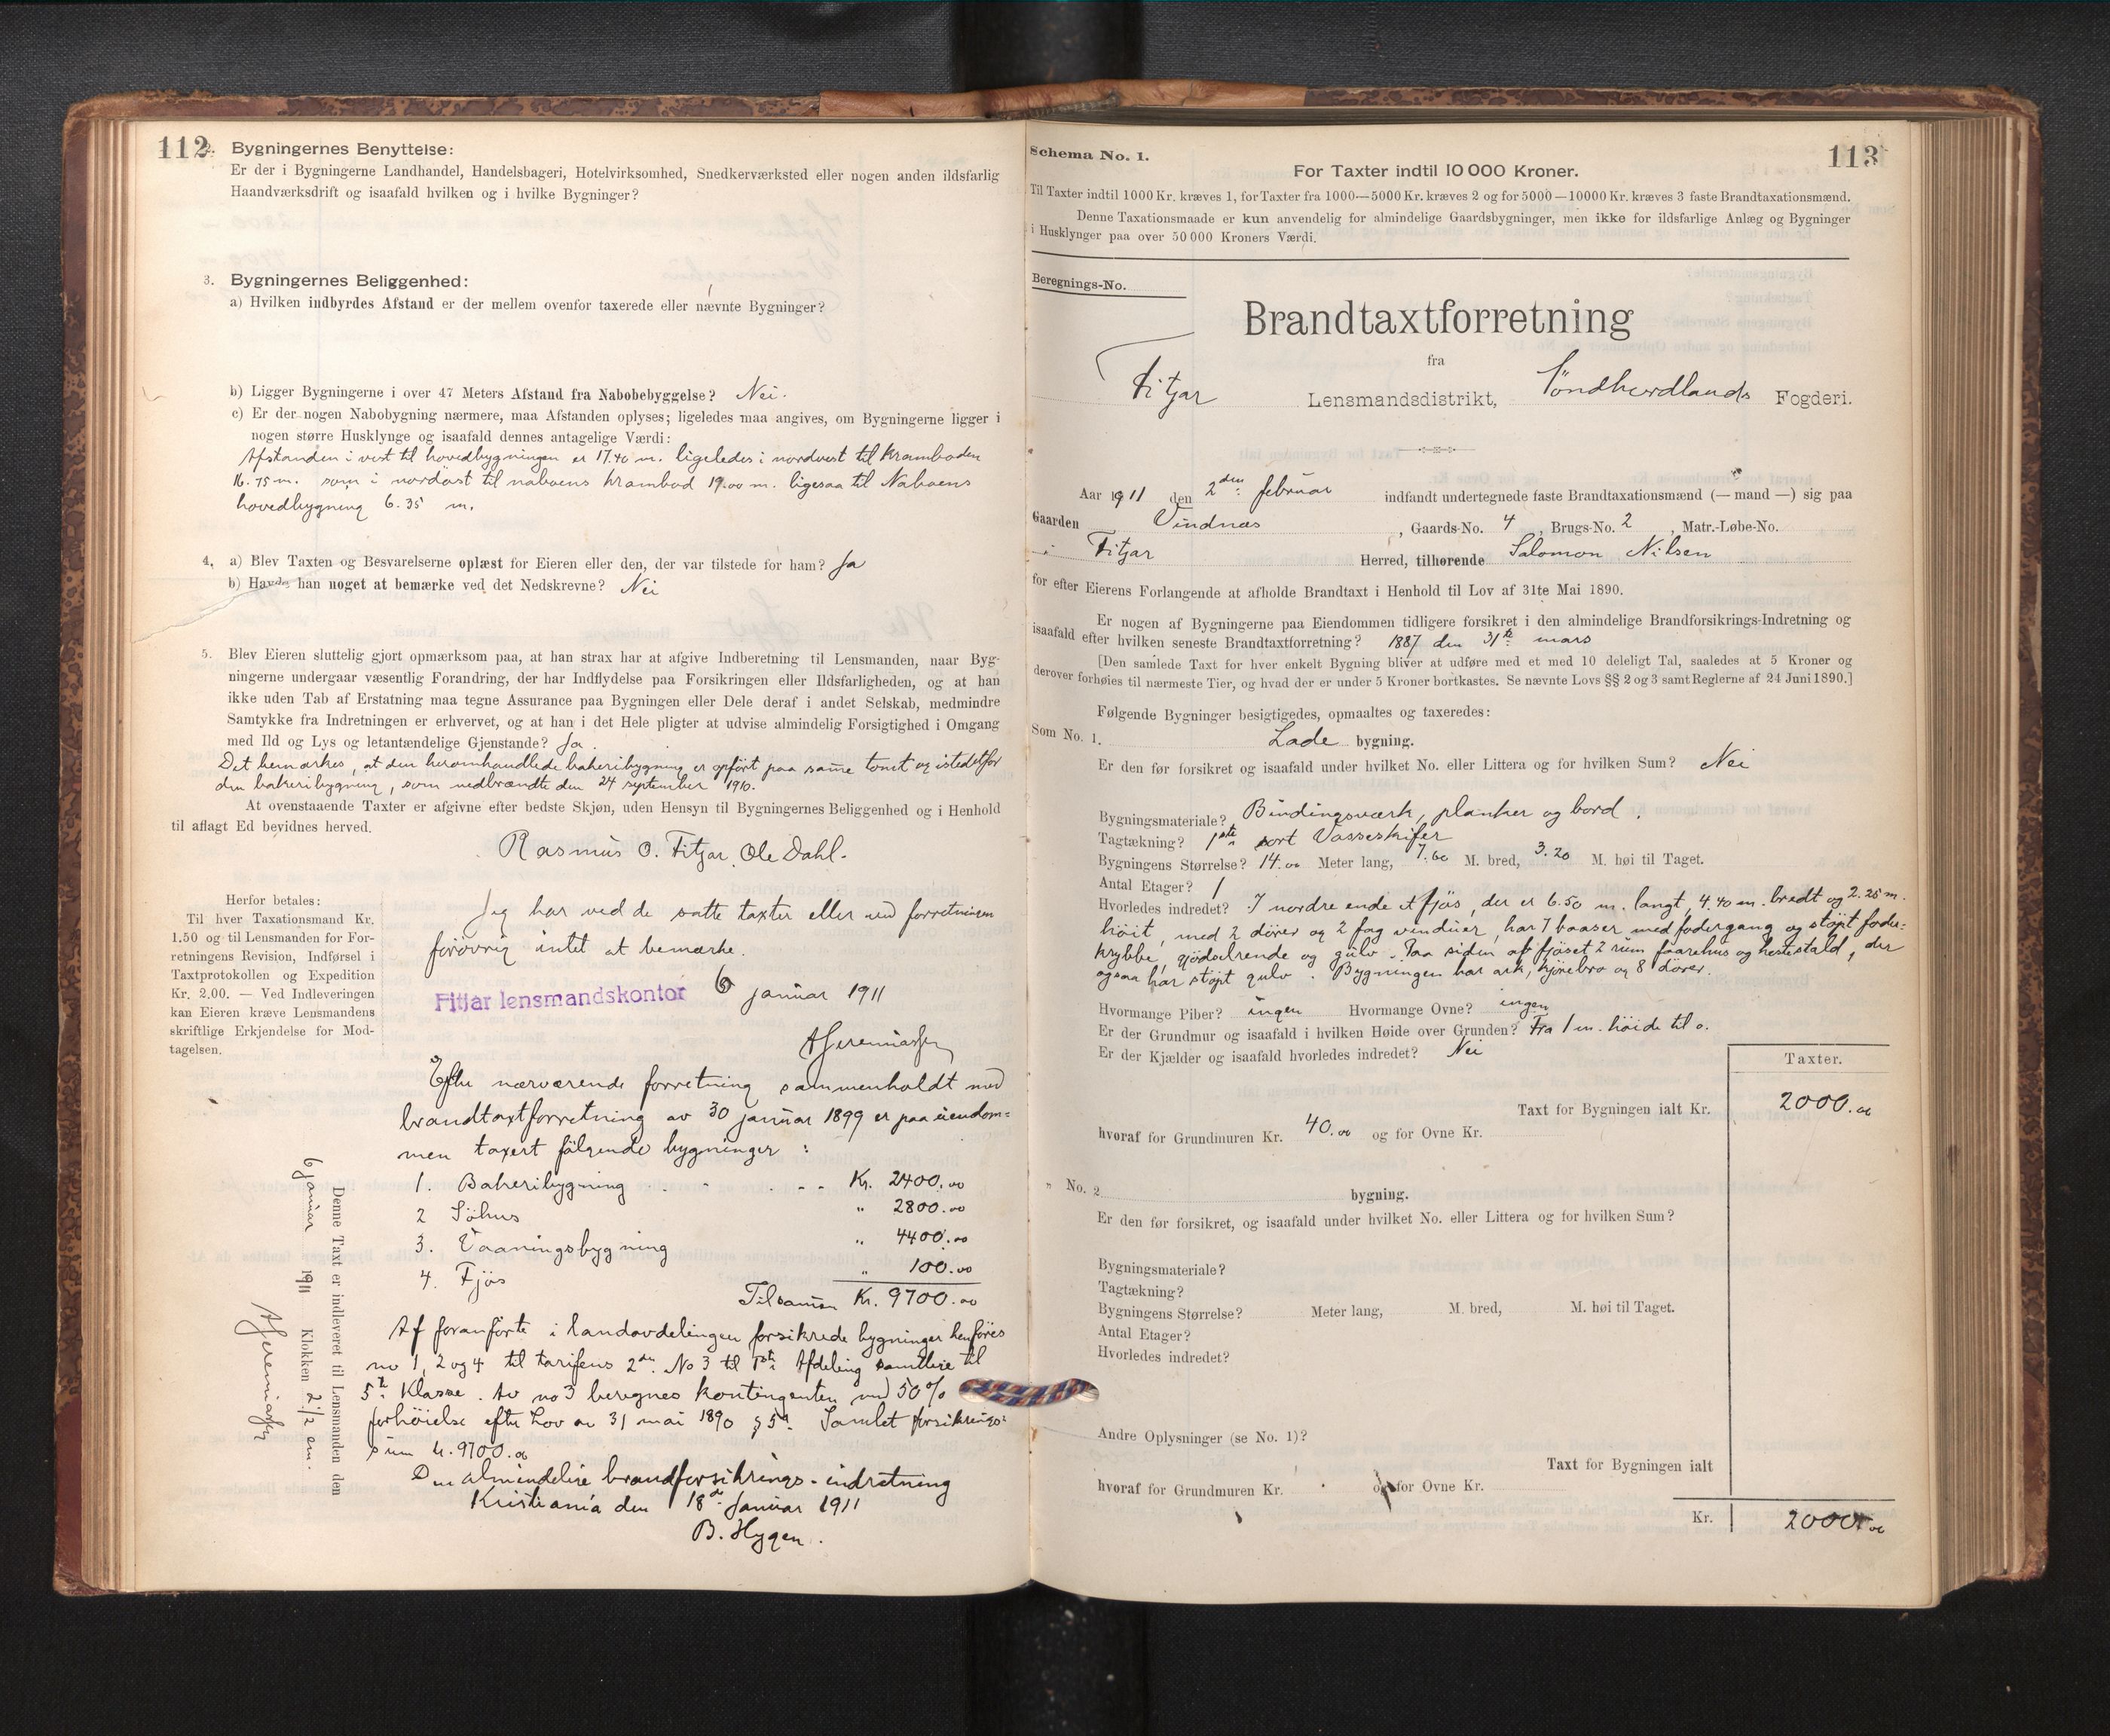 112
2. Bygningernes Benyttelse:
Er der i Bygningerne Landhandel, Handelsbageri, Hotelvirksomhed, Snedkerværksted eller nogen anden ildsfarlig
Haandværksdrift og isaafald hvilken og i hvilke Bygninger?
3. Bygningernes Beliggenhed:
a) Hvilken indbyrdes Afstand er der mellem ovenfor taxerede eller nævnte Bygninger?
b) Ligger Bygningerne i over 47 Meters Afstand fra Nabobebyggelse? Nei.
c) Er der nogen Nabobygning nærmere, maa Afstanden oplyses; ligeledes maa angives, om Bygningerne ligger i
nogen større Husklynge og isaafald dennes antagelige Værdi:
Afstanden i vest til hovedbygningen er 17.40 m. ligeledes i nordvest til Kramboden
16.75 m. som i nordöst til naboens krambod 19.00 m. ligesaa til Naboens
hovedbygning 6.35 m.
4. a) Blev Taxten og Besvarelserne oplæst for Eieren eller den, der var tilstede for ham? Ja
b) Havde han noget at bemærke ved det Nedskrevne? Nei
5. Blev Eieren sluttelig gjort opmærksom paa, at han strax har at afgive Indberetning til Lensmanden, naar Byg-
ningerne undergaar væsentlig Forandring, der har Indflydelse paa Forsikringen eller Ildsfarligheden, og at han
ikke uden Tab af Erstatning maa tegne Assurance paa Bygningen eller Dele deraf i andet Selskab, medmindre
Samtykke fra Indretningen er erhvervet, og at han i det Hele pligter at udvise almindelig Forsigtighed i Omgang
med Ild og Lys og letantændelige Gjenstande? Ja.
Det bemærkes, at den heromhandlede bakeribygning er opfört paa samme tomt og istedetfor
den bakeribygning, som nedbrændte den 24 september 1910.
At ovenstaaende Taxter er afgivne efter bedste Skjøn, uden Hensyn til Bygningernes Beliggenhed og i Henhold
til aflagt Ed bevidnes herved.
Rasmus O. Fitjar. Ole Dahl.
Herfor betales:
Til hver Taxationsmand Kr.
1.50 og til Lensmanden for For-
retningens Revision, Indførsel i
Taxtprotokollen og Expedition
Kr. 2.00. — Ved Indleveringen
kan Eieren kræve Lensmandens
skriftlige Erkjendelse for Mod-
tagelsen.
Jeg har ved de satte taxter eller ved forretningen
forövrig intet at bemærke.
Fitjar lensmandskontor 6 januar 1911
A Jeremiassen
Efter nærværende forretning sammenholdt med
brandtaxtforretning av 30 januar 1899 er paa eiendom=
men taxert fölgende bygninger:
1. Bakeribygning Kr. 2400.00
2 Söhus " 2800.00
3. Vaaningsbygning " 4400.00
4. Fjös " 100.00
Tilsammen Kr. 9700.00
Af foranförte i landavdelingen forsikrede bygninger henföres
no 1, 2 og 4 til tarifens 2den No 3 til 1ste Afdeling samtlige til
5te Klasse. Av no 3 beregnes kontingenten med 50%
forhöielse efter Lov av 31 mai 1890 § 5. Samlet forsikrings-
sum kr. 9700.00
Den almindelige brandforsikrings-indretning
Kristiania den 18de Januar 1911
B. Hygen.
Denne Taxt er indleveret til Lensmanden den
6 januar 1911 Klokken 2 1/2 em.
A Jeremiassen
113
Schema No. 1.
For Taxter indtil 10 000 Kroner.
Til Taxter indtil 1000 Kr. kræves 1, for Taxter fra 1000—5000 Kr. kræves 2 og for 5000—10000 Kr. kræves 3 faste Brandtaxationsmænd.
Denne Taxationsmaade er kun anvendelig for almindelige Gaardsbygninger, men ikke for ildsfarlige Anlæg og Bygninger
i Husklynger paa over 50 000 Kroners Værdi.
Beregnings-No.
Brandtaxtforretning
fra
Fitjar Lensmandsdistrikt, Söndhordlands Fogderi.
Aar 1911 den 2den februar indfandt undertegnede faste Brandtaxationsmænd (— mand —) sig paa
Gaarden Vindnæs, Gaards-No. 4, Brugs-No. 2, Matr.-Løbe-No.
i Fitjar Herred, tilhørende Salomon Nilsen
for efter Eierens Forlangende at afholde Brandtaxt i Henhold til Lov af 31te Mai 1890.
Er nogen af Bygningerne paa Eiendommen tidligere forsikret i den almindelige Brandforsikrings-Indretning og
isaafald efter hvilken seneste Brandtaxtforretning? 1887 den 31te mars
[Den samlede Taxt for hver enkelt Bygning bliver at udføre med et med 10 deleligt Tal, saaledes at 5 Kroner og
derover forhøies til nærmeste Tier, og hvad der er under 5 Kroner bortkastes. Se nævnte Lovs §§ 2 og 3 samt Reglerne af 24 Juni 1890.]
Følgende Bygninger besigtigedes, opmaaltes og taxeredes:
Som No. 1. Lade bygning.
Er den før forsikret og isaafald under hvilket No. eller Littera og for hvilken Sum? Nei
Bygningsmateriale? Bindingsværk, planker og bord.
Tagtækning? 1ste sort Vosseskifer
Bygningens Størrelse? 14.00 Meter lang, 7.60 M. bred, 3.20 M. høi til Taget.
Antal Etager? 1
Hvorledes indredet? I nordre ende et fjös, der er 6.50 m. langt, 4.40 m. bredt og 2.25 m.
höit, med 2 dörer og 2 fag vinduer, har 7 baaser med fodergang og stöpt foder=
krybbe, gjödselrende og gulv. Paa siden af fjöset 2 rum faarehus og hestestald, der
ogsaa har stöpt gulv. Bygningen har ark, kjörebro og 8 dörer.
Hvormange Piber? ingen Hvormange Ovne? ingen
Er der Grundmur og isaafald i hvilken Høide over Grunden? Fra 1 m. höide til 0.
Er der Kjælder og isaafald hvorledes indredet? Nei
Taxter.
Taxt for Bygningen ialt Kr. 2000.00
hvoraf for Grundmuren Kr. 40.00 og for Ovne Kr.
" No. 2 bygning.
Er den før forsikret, og isaafald under hvilket No. eller Littera og for hvilken Sum?
Bygningsmateriale?
Tagtækning?
Bygningens Størrelse? Meter lang, M. bred, M. høi til Taget.
Antal Etager?
Hvorledes indredet?
Andre Oplysninger (se No. 1)?
Taxt for Bygningen ialt
hvoraf for Grundmuren Kr. og for Ovne Kr.
Kr. 2000.00